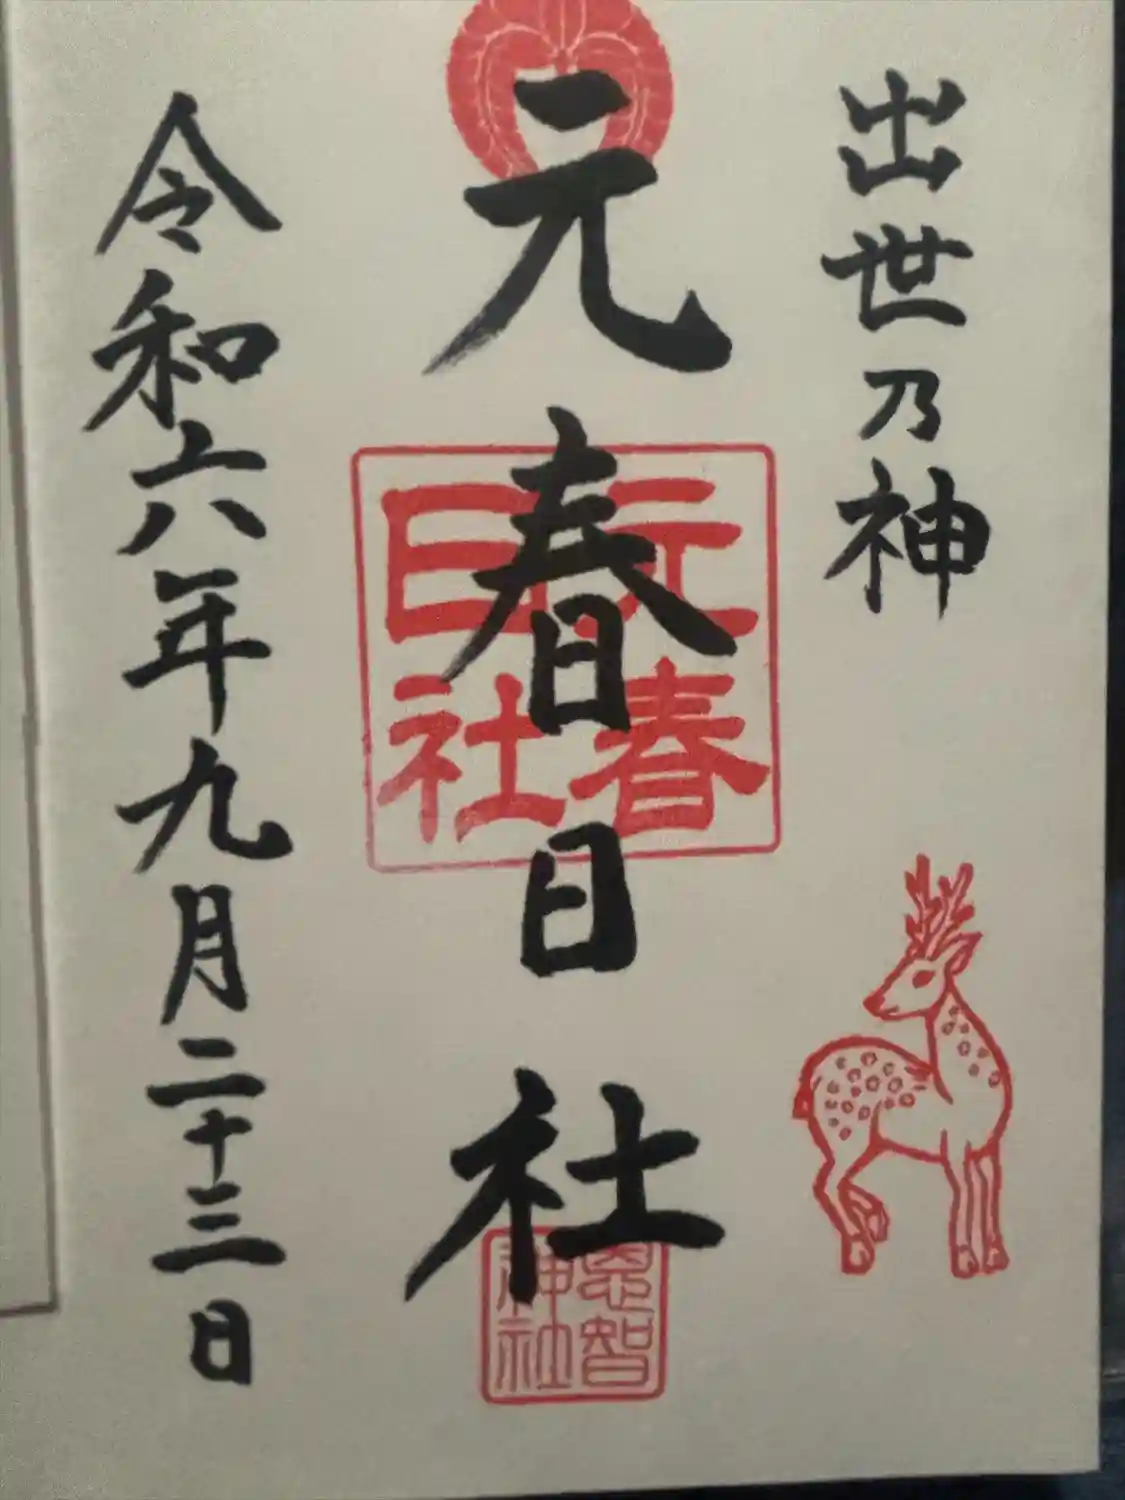 出世乃神
元春日社
元春
日社
恩智
神社
令和六年九月二十三日